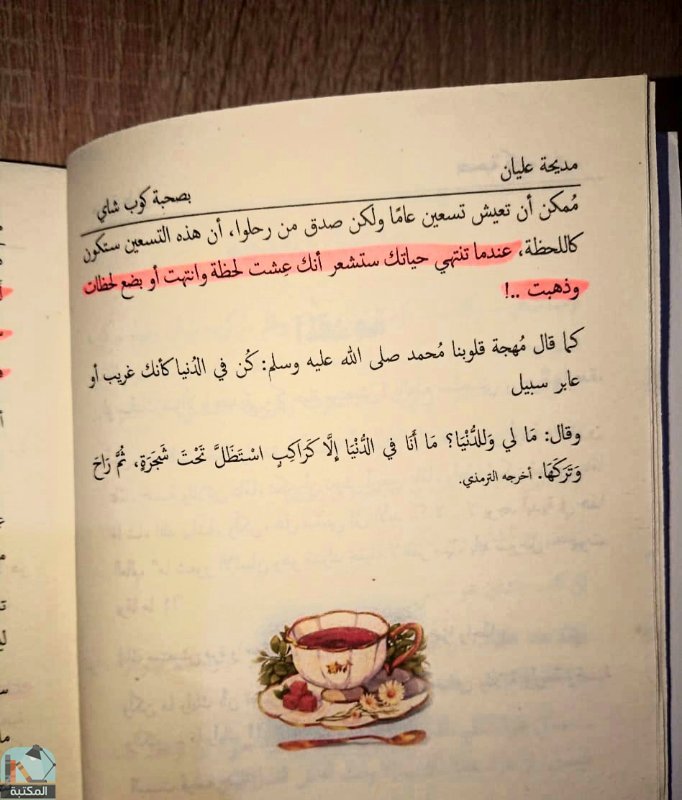 مديحة عليان
بصحبة كوب شاي
مُمكن أن تعيش تسعين عامًا ولكن صدق من رحلوا، أن هذه التسعين ستكون
كاللحظة، عندما تنتهي حياتك ستشعر أنك عِشت لحظة وانتهت أو بضع لحظات
وذهبت ..!
كما قال مُهجة قلوبنا مُحمد صلى الله عليه وسلم: كُن في الدُنيا كأنك غريب أو
عابر سبيل
وقال: مَا لي وَللدُّنْيَا؟ مَا أَنَا في الدُّنْيَا إِلَّا كَرَاكِبٍ اسْتَظَلَّ تَحْتَ شَجَرَةٍ، ثُمَّ رَاحَ
وَتَرَكَهَا. أخرجه الترمذي.
المكتبة